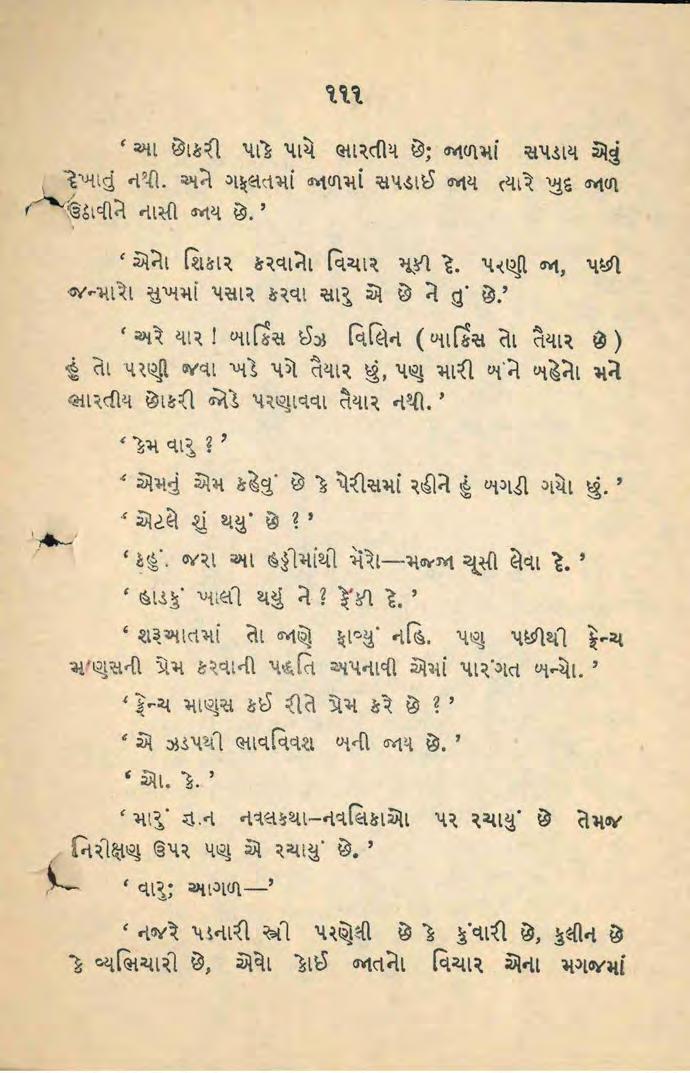 ૧૧૧
‘આ છોકરી પાકે પાયે ભારતીય છે; જાળમાં સપડાય એવું
દેખાતું નથી. અને ગફલતમાં જાળમાં સપડાઈ જાય ત્યારે ખુદ જાળ
ઉઠાવીને નાસી જાય છે.’
‘એનો શિકાર કરવાનો વિચાર મૂકી દે. પરણી જા, પછી
જન્મારો સુખમાં પસાર કરવા સારુ એ છે ને તું છે.’
‘અરે યાર! બાર્કિસ ઈઝ વિલિન (બાર્કિસ તો તૈયાર છે)
હું તો પરણી જવા ખડે પગે તૈયાર છું, પણ મારી બંને બહેનો મને
ભારતીય છોકરી જોડે પરણાવવા તૈયાર નથી.’
‘કેમ વારુ ?’
‘એમનું એમ કહેવું છે કે પેરીસમાં રહીને હું બગડી ગયો છું.’
‘એટલે શું થયું છે ?’
‘કહું. જરા આ હડ્ડીમાંથી મેંરો—મજ્જા ચૂસી લેવા દે.’
‘હાડકું ખાલી થયું ને? ફેંકી દે.’
‘શરૂઆતમાં તો જાણે ફાવ્યું નહિ. પણ પછીથી ફ્રેન્ચ
માણસની પ્રેમ કરવાની પદ્ધતિ અપનાવી એમાં પારંગત બન્યો.’
‘ફ્રેન્ચ માણસ કઈ રીતે પ્રેમ કરે છે ?’
‘એ ઝડપથી ભાવવિવશ બની જાય છે.’
‘ઓ. કે.’
‘મારું જ્ઞાન નવલકથા–નવલિકાઓ પર રચાયું છે તેમજ
નિરીક્ષણ ઉપર પણ એ રચાયું છે.’
‘વારુ; આગળ—’
‘નજરે પડનારી સ્ત્રી પરણેલી છે કે કુંવારી છે, કુલીન છે
કે વ્યભિચારી છે, એવો કોઈ જાતનો વિચાર એના મગજમાં